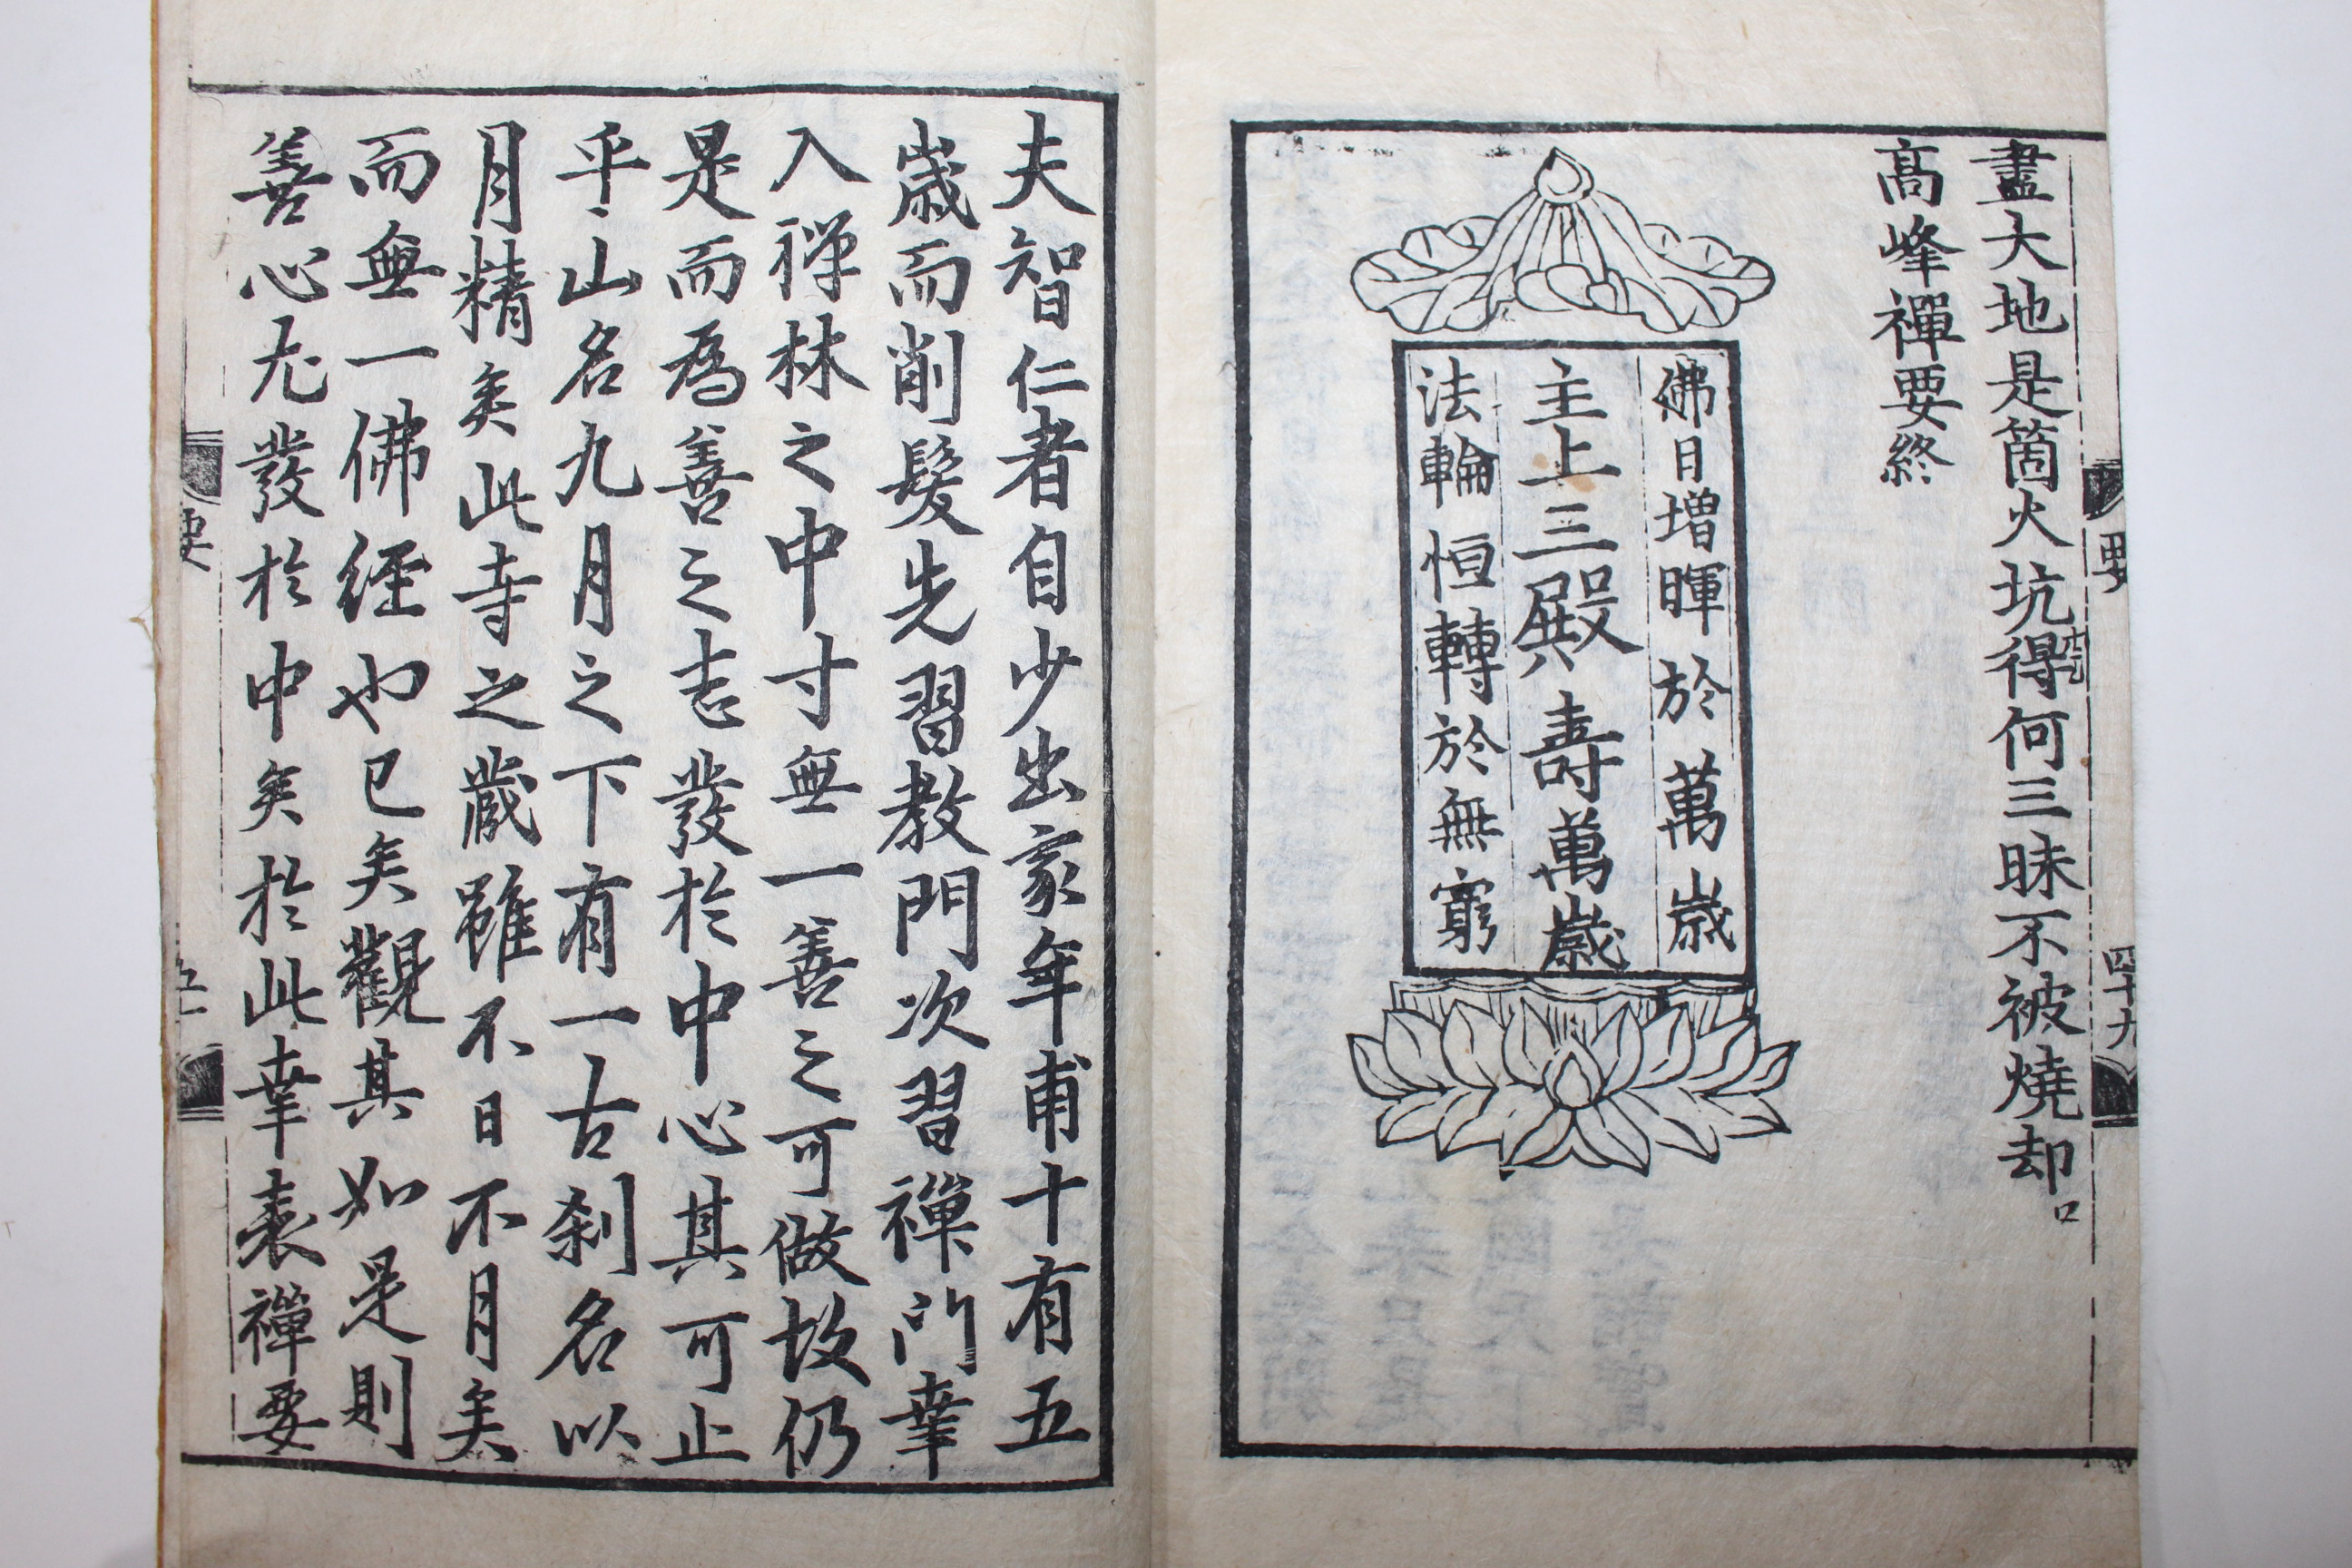 盡大地是箇火坑得何三昧不被燒却
高峰禪要終
佛日增暉於萬歲
主上三殿壽萬歲
法輪恒轉於無窮
要
四十九
夫智仁者自少出家年甫十有五
歲而削髮先習教門次習禪門幸
入禅林之中寸無一善之可做故仍
是而爲善之志發於中心其可止
乎山名九月之下有一古刹名以
月精矣此寺之藏雖不日不月矣
而無一佛經也已矣觀其如是則
善心尤發於中矣於此幸表禪要
要
五十